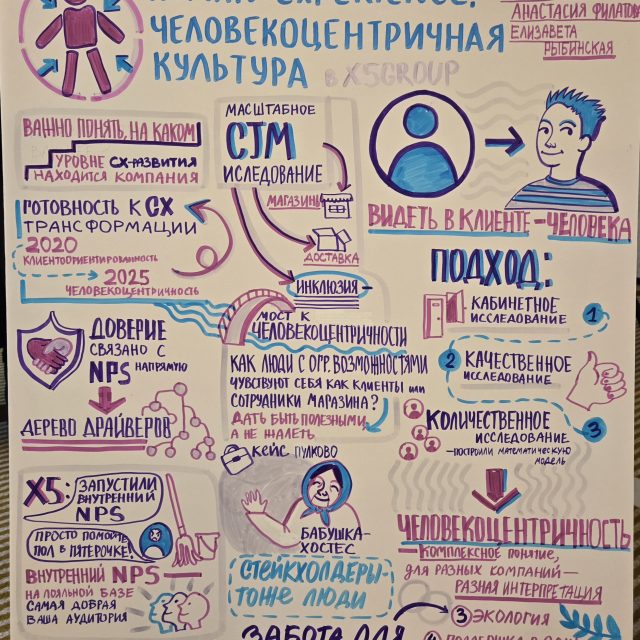 ЧЕЛОВЕКОЦЕНТРИЧНАЯ
КУЛЬТУРА в X5GROUP
АНАСТАСИЯ ФИЛАТОВА
ЕЛИЗАВЕТА
РЫБИНСКАЯ
ВАЖНО ПОНЯТЬ, НА КАКОМ
УРОВНЕ CX-РАЗВИТИЯ
НАХОДИТСЯ КОМПАНИЯ
ГОТОВНОСТЬ К CX
ТРАНСФОРМАЦИИ
2020
КЛИЕНТООРИЕНТИРОВАННОСТЬ
2025
ЧЕЛОВЕКОЦЕНТРИЧНОСТЬ
ДОВЕРИЕ
СВЯЗАНО С
NPS НАПРЯМУЮ
ДЕРЕВО ДРАЙВЕРОВ
X5: ЗАПУСТИЛИ
ВНУТРЕННИЙ
NPS
ПРОСТО ПОМОЙТЕ
ПОЛ В ПЯТЕРОЧКЕ!
ВНУТРЕННИЙ NPS —
НА ЛОЯЛЬНОЙ БАЗЕ
САМАЯ ДОБРАЯ
ВАША АУДИТОРИЯ
МАСШТАБНОЕ
CJM
ИСЛЕДОВАНИЕ
МАГАЗИНЫ
ДОСТАВКА
ИНКЛЮЗИЯ —
МОСТ К
ЧЕЛОВЕКОЦЕНТРИЧНОСТИ
КАК ЛЮДИ С ОГР. ВОЗМОЖНОСТЯМИ
ЧУВСТВУЮТ СЕБЯ КАК КЛИЕНТЫ ИЛИ
СОТРУДНИКИ МАГАЗИНА?
ДАТЬ БЫТЬ ПОЛЕЗНЫМИ,
А НЕ ЖАЛЕТЬ
КЕЙС ПУЛКОВО
БАБУШКА-
ХОСТЕС
СТЕЙКХОЛДЕРЫ-
ТОЖЕ ЛЮДИ
ЗАБОТА ДЛЯ
ВИДЕТЬ В КЛИЕНТЕ - ЧЕЛОВЕКА
ПОДХОД:
КАБИНЕТНОЕ
ИССЛЕДОВАНИЕ 1
2 КАЧЕСТВЕННОЕ
ИССЛЕДОВАНИЕ
КОЛИЧЕСТВЕННОЕ 3
ИССЛЕДОВАНИЕ
— ПОСТРОИЛИ МАТЕМАТИЧЕСКУЮ
МОДЕЛЬ
ЧЕЛОВЕКОЦЕНТРИЧНОСТЬ
— КОМПЛЕКСНОЕ ПОНЯТИЕ,
ДЛЯ РАЗНЫХ КОМПАНИЙ —
РАЗНАЯ ИНТЕРПРЕТАЦИЯ
3 ЭКОЛОГИЯ